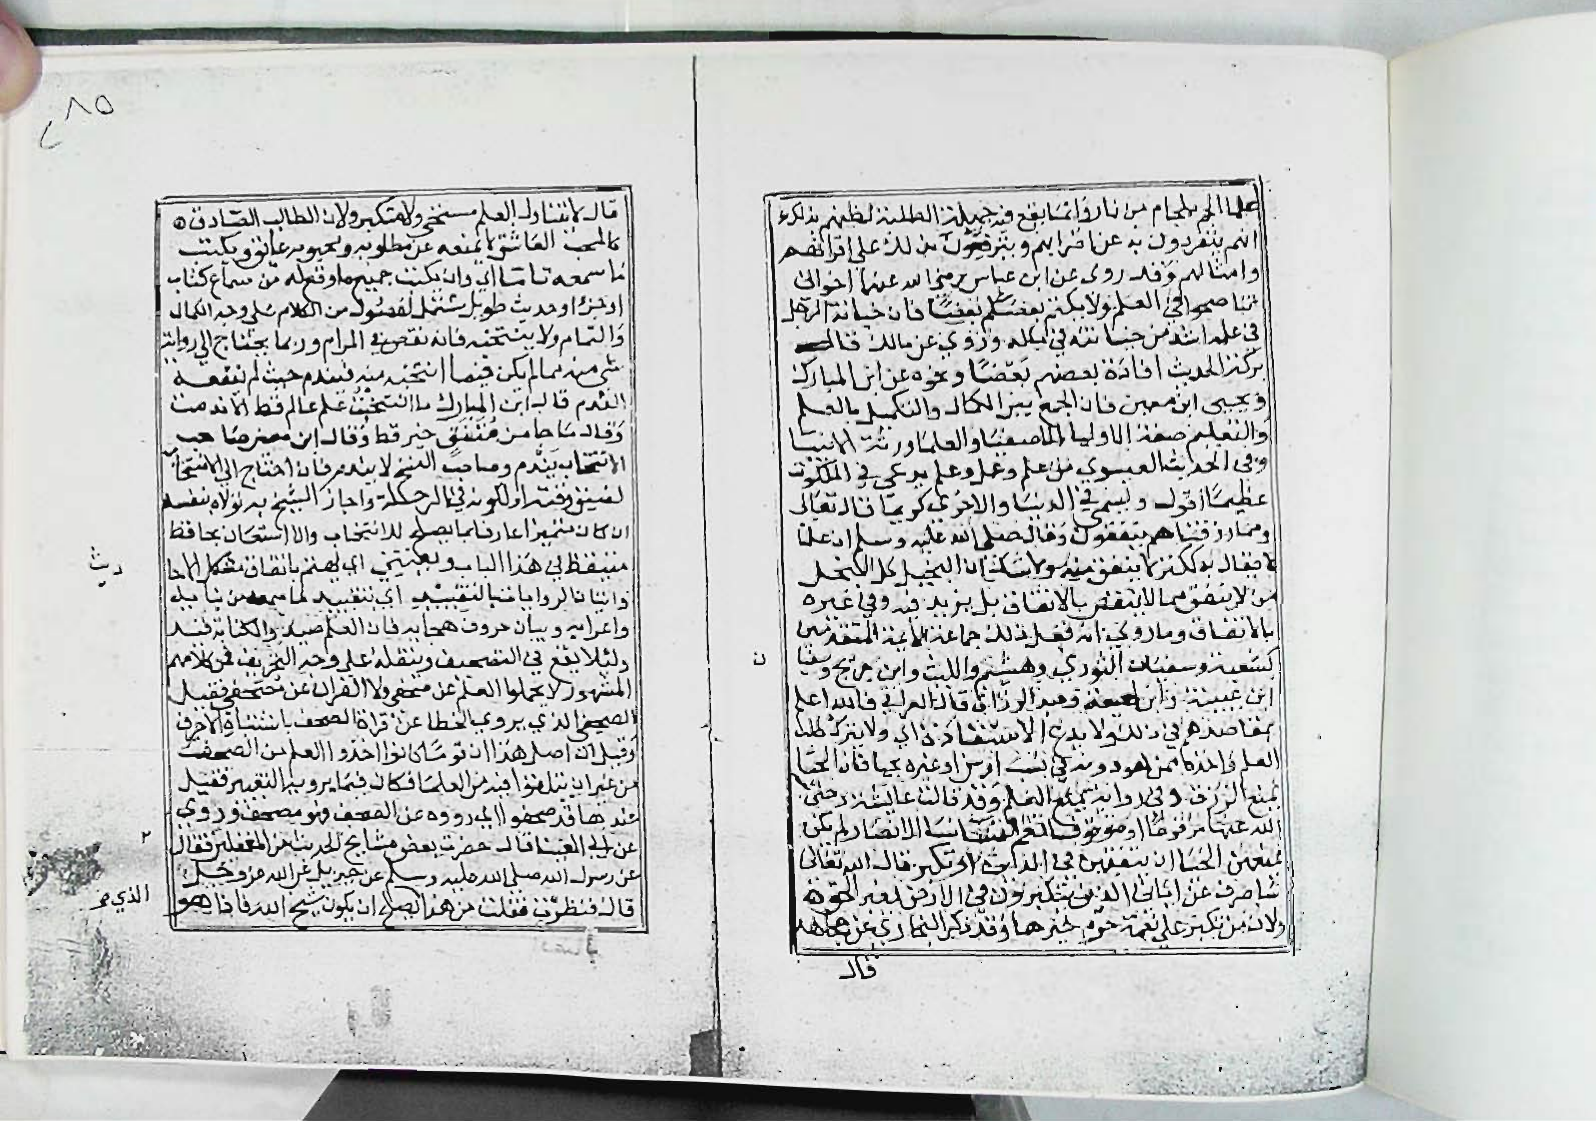 علما الجم بلجام من نار وانما يقع فيه جهلة الطلبة لظنهم بذلك
انهم ينفردون به عن اضرابهم ويترفعون بذلك على اقرانهم
وامثالهم وقد روى عن ابن عباس رضي الله عنهما اخوانى
تناصحوا في العلم ولا يكتم بعضكم بعضا فان خيانة الرجل
في علمه اشد من خيانته في ماله وروي عن مالك قال
بركة الحديث افادة بعضهم بعضا ونحوه عن ابن المبارك
ويحيى ابن معين فان الجمع بين الكمال والتكميل بالعلم
والتعليم صفة الاوليا الاصفيا والعلما ورثة الانبيا
وفي الحديث العيسوي من علم وعمل وعلم يدعى في الملكوت
عظيما اقول ويسمى في الدنيا والاخرى كريما قال تعالى
ومما رزقناهم ينفقون وقال صلى الله عليه وسلم ان علما
لا يقال به ككنز لا ينفق منه ولا شك ان البخيل كل البخل
من لا ينفق مما لا ينقص بالانفاق بل يزيد فيه وفي غيره
بالانفاق وما روي انه فعل ذلك جماعة من الايمة المتقدمين
كشعبة وسفيان الثوري وهشيم والليث وابن جريج وسفيان
ابن عيينة وابن لهيعة وعبد الرزاق قال العراقي فالله اعلم
بمقاصدهم في ذلك ولا يدع الاستفادة اي ولا يترك طلب
العلم واخذه ممن هو دونه في نسب او سن او غيره بحيا فان الحيا
يمنع الرزق وفي رواية يمنع العلم وقد قالت عايشة رضي
الله عنها مرفوعا او موقوفا نعم النسا نسا الانصار لم يكن
يمنعهن الحيا ان يتفقهن في الدين او تكبر قال الله تعالى
ساصرف عن اياتي الذين يتكبرون في الارض بغير الحق
ولان من تكبر على نعمة حرم خيرها وقد ذكر البخاري عن مجاهد
قال
ن
٢٨٥
قال لا ينال العلم مستحى ولا متكبر ولان الطالب الصادق
كالمحب العاشق لا يمنعه عن مطلوبه ومحبوبه عائق ويكتب
ما سمعه تاما اي وان يكتب جميع ما وقع له من سماع كتاب
او جزء او حديث طويل يشتمل لفصول من الكلام على وجه الكمال
والتمام ولا ينتخبه فانه نقص في المرام وربما يحتاج الى رواية
شي منه مما لم يكن فيما انتخبه منه فيندم حيث لم ينفعه
الندم قال ابن المبارك ما انتخبت على عالم قط الا ندمت
وقال ما جا من منتقى خير قط وقال ابن معين صاحب
الانتخاب يندم وصاحب النسخ لا يندم فان احتاج الى الانتخاب
لضيق وقته او لكونه في الرحلة واجاز الشيخ به تولاه بنفسه
ان كان متميزا عارفا بما يصلح للانتخاب والا استعان بحافظ
متيقظ في هذا الباب ويعتني اي يهتم باتقان مشكل الاحا
ديث
واعرابه وبيان حروف هجايه فان العلم صيد والكتابة قيد
ولئلا يقع في التصحيف وينقله على وجه التحريف فمن كلامهم
المشهور لا يحملوا العلم عن صحفي ولا القران عن مصحفي فقيل
الصحفي الذي يروي الخطا عن قراة الصحف باشتباه الاحرف
وقيل ان اصل هذا ان قوما كانوا اخذوا العلم من الصحف
من غير ان يتلقوا فيه من العلما فكان فيما يرويه التغيير فقيل
عندها قد صحفوا اي رووه عن الصحف وهو مصحف وروي
عن ابي العينا قال حضرت بعض مشايخ الحديث من المغفلين فقال
عن رسول الله صلى الله عليه وسلم عن جبريل عن الله عز وجل
قال فنظرت فقلت من هذا الصلح ان يكون شيخ الله فاذا هو
الذي